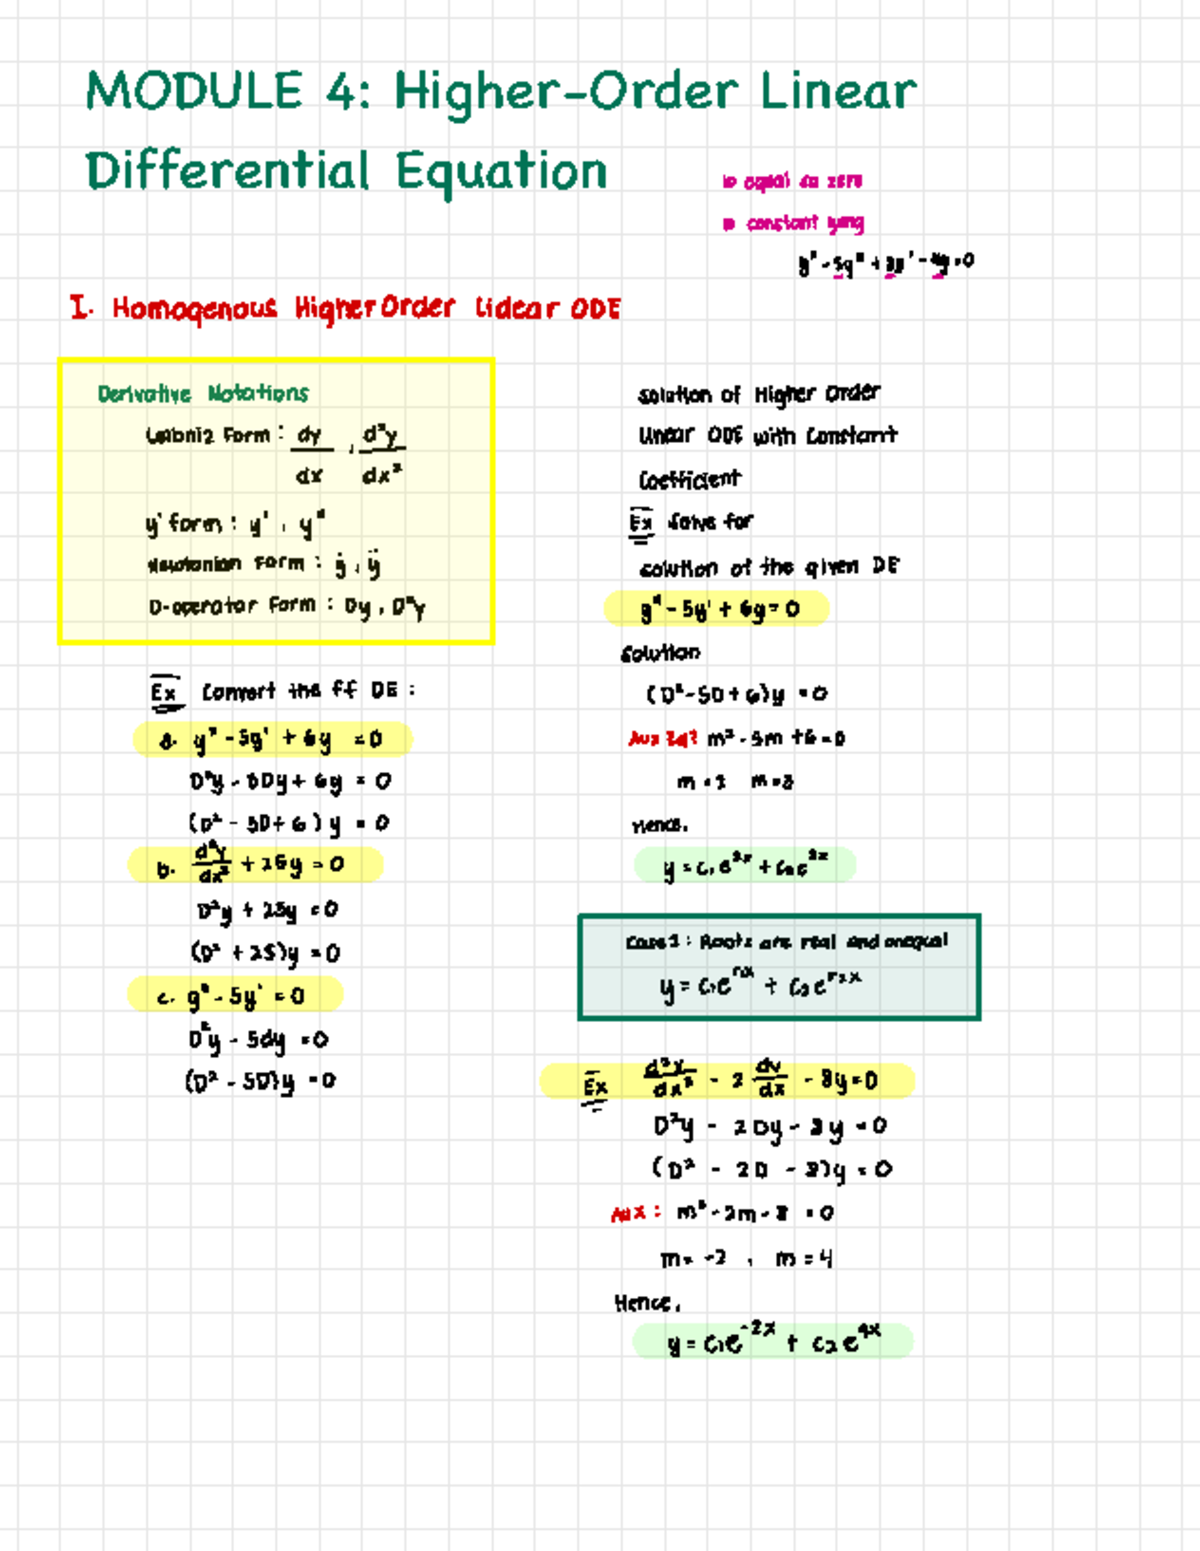 MODULE 4: Higher-Order Linear
Differential Equation
equal sa zero
constant lang
I. Homogenous Higher Order Lidear ODE
Derivative Notations
Leibniz Form: dy/dx , d²y/dx²
y' form: y' , y"
Newtonian Form: ẏ , ÿ
D-operator Form: Dy , D²y
Ex Convert the ff DE:
a. y" - 5y' + 6y = 0
D²y - 5Dy + 6y = 0
(D² - 5D + 6)y = 0
b. d²y/dx² + 25y = 0
D²y + 25y = 0
(D² + 25)y = 0
c. y" - 5y' = 0
D²y - 5dy = 0
(D² - 5D)y = 0
Solution of Higher Order
Linear ODE with Constant
Coefficient
Ex Solve for
solution of the given DE
y" - 5y' + 6y = 0
Solution
(D² - 5D + 6)y = 0
m² - 5m + 6 = 0
Hence,
Case 1: Roots are real and unequal
y = c₁e^r₁x + c₂e^r₂x
Ex - 2 dy/dx - 8y = 0
D²y - 2Dy - 8y = 0
(D² - 2D - 8)y = 0
Aux: m² - 2m - 8 = 0
m = -2 , m = 4
Hence,
y = c₁e^-2x + c₂e^4x